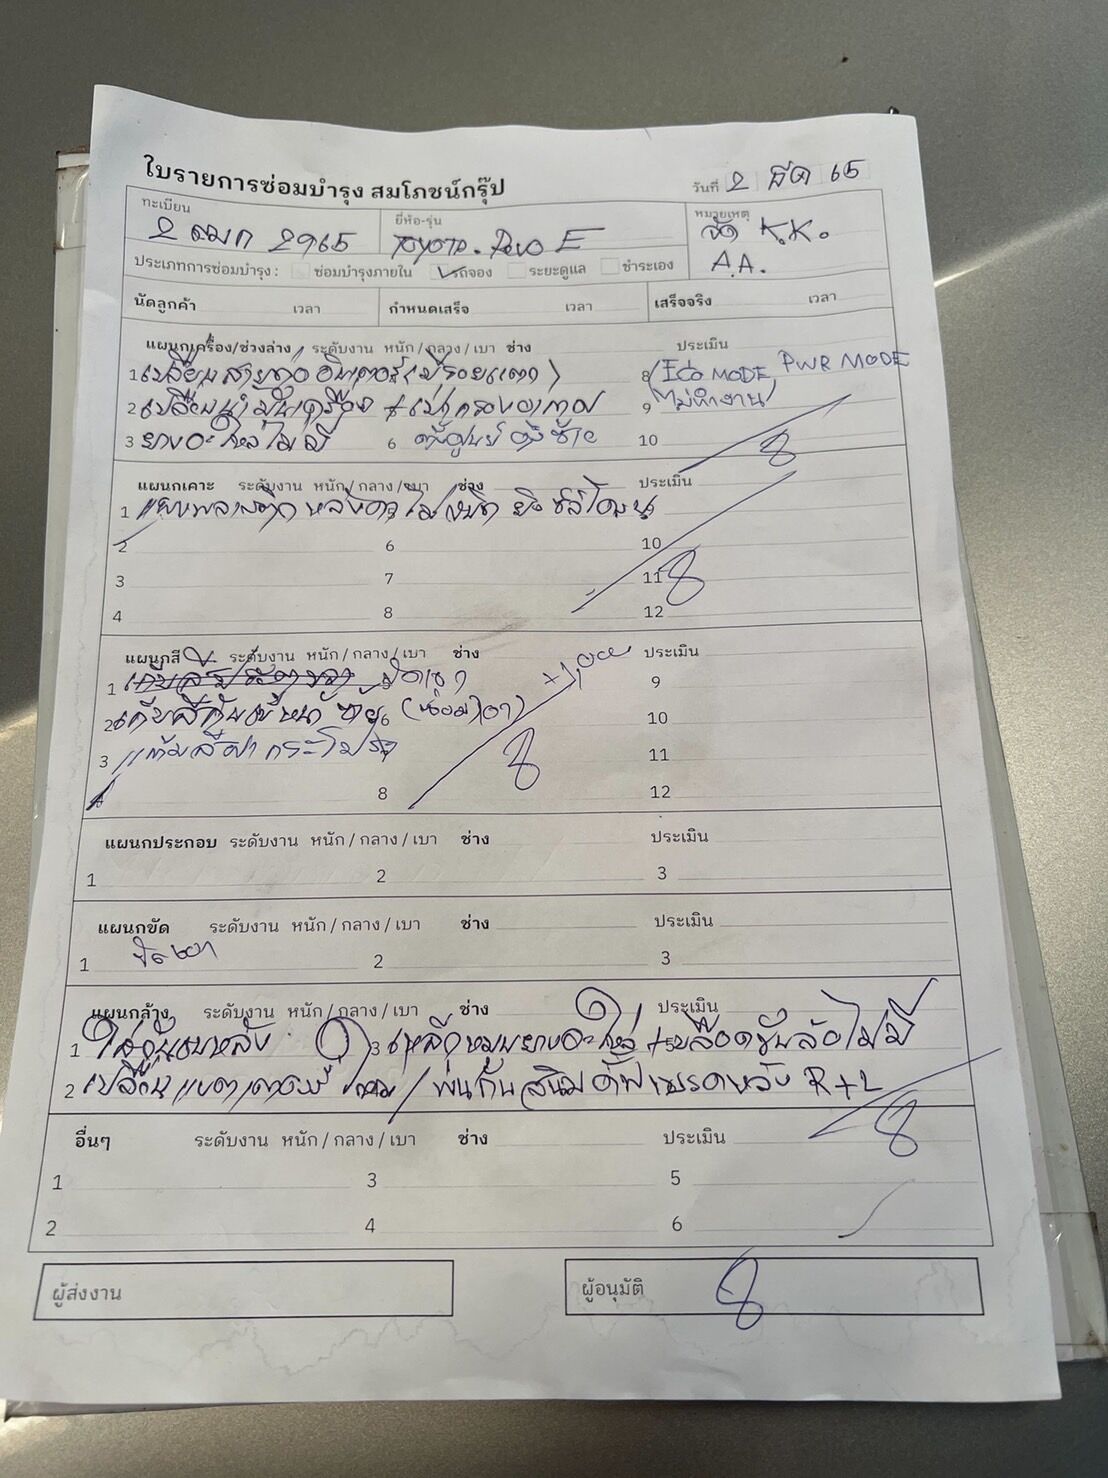 ใบรายการซ่อมบำรุง สมโภชน์กรุ๊ป
วันที่ 2 มีค 65
ทะเบียน ยี่ห้อ-รุ่น หมายเหตุ
2 ฒก 2965 TOYOTA. Revo E จัด K.K.
A.A.
ประเภทการซ่อมบำรุง : ซ่อมบำรุงภายใน รถจอง ระยะดูแล ชำระเอง
นัดลูกค้า เวลา กำหนดเสร็จ เวลา เสร็จจริง เวลา
แผนกเครื่อง/ช่วงล่าง ระดับงาน หนัก / กลาง / เบา ช่าง ประเมิน
1 เปลี่ยนสายท่อ อินเตอร์ (มีรอยแตก) 8 (ECO MODE, PWR MODE
2 เปลี่ยนน้ำมันเครื่อง + เป่ากรองอากาศ 9 ไม่ทำงาน)
3 ยางอะไหล่ไม่มี 6 ตั้งศูนย์ ดึงซ้าย 10
8
แผนกเคาะ ระดับงาน หนัก / กลาง / เบา ช่าง ประเมิน
1 พลาสติก หลังคา ไม่ ยิงซิลิโคน
2 6 10
3 7 11 8
4 8 12
แผนกสี ระดับงาน หนัก / กลาง / เบา ช่าง ประเมิน
1 9
2 เก็บสีกันชนหน้า ซ้าย 10
3 แต้มสีฝากระโปรง 8 11
4 8 12
แผนกประกอบ ระดับงาน หนัก / กลาง / เบา ช่าง ประเมิน
1 2 3
แผนกขัด ระดับงาน หนัก / กลาง / เบา ช่าง ประเมิน
1 ขัดเงา 2 3
แผนกล้าง ระดับงาน หนัก / กลาง / เบา ช่าง ประเมิน
1 ใส่กันชนหลัง 3 เหล็กหมุนยางอะไหล่ + บล็อคขันล้อไม่มี
2 เปลี่ยนแบตเตอรี่ / พ่นกันสนิมดั้มเบรคหลัง R+L
8
อื่นๆ ระดับงาน หนัก / กลาง / เบา ช่าง ประเมิน
1 3 5
2 4 6
ผู้ส่งงาน ผู้อนุมัติ 8